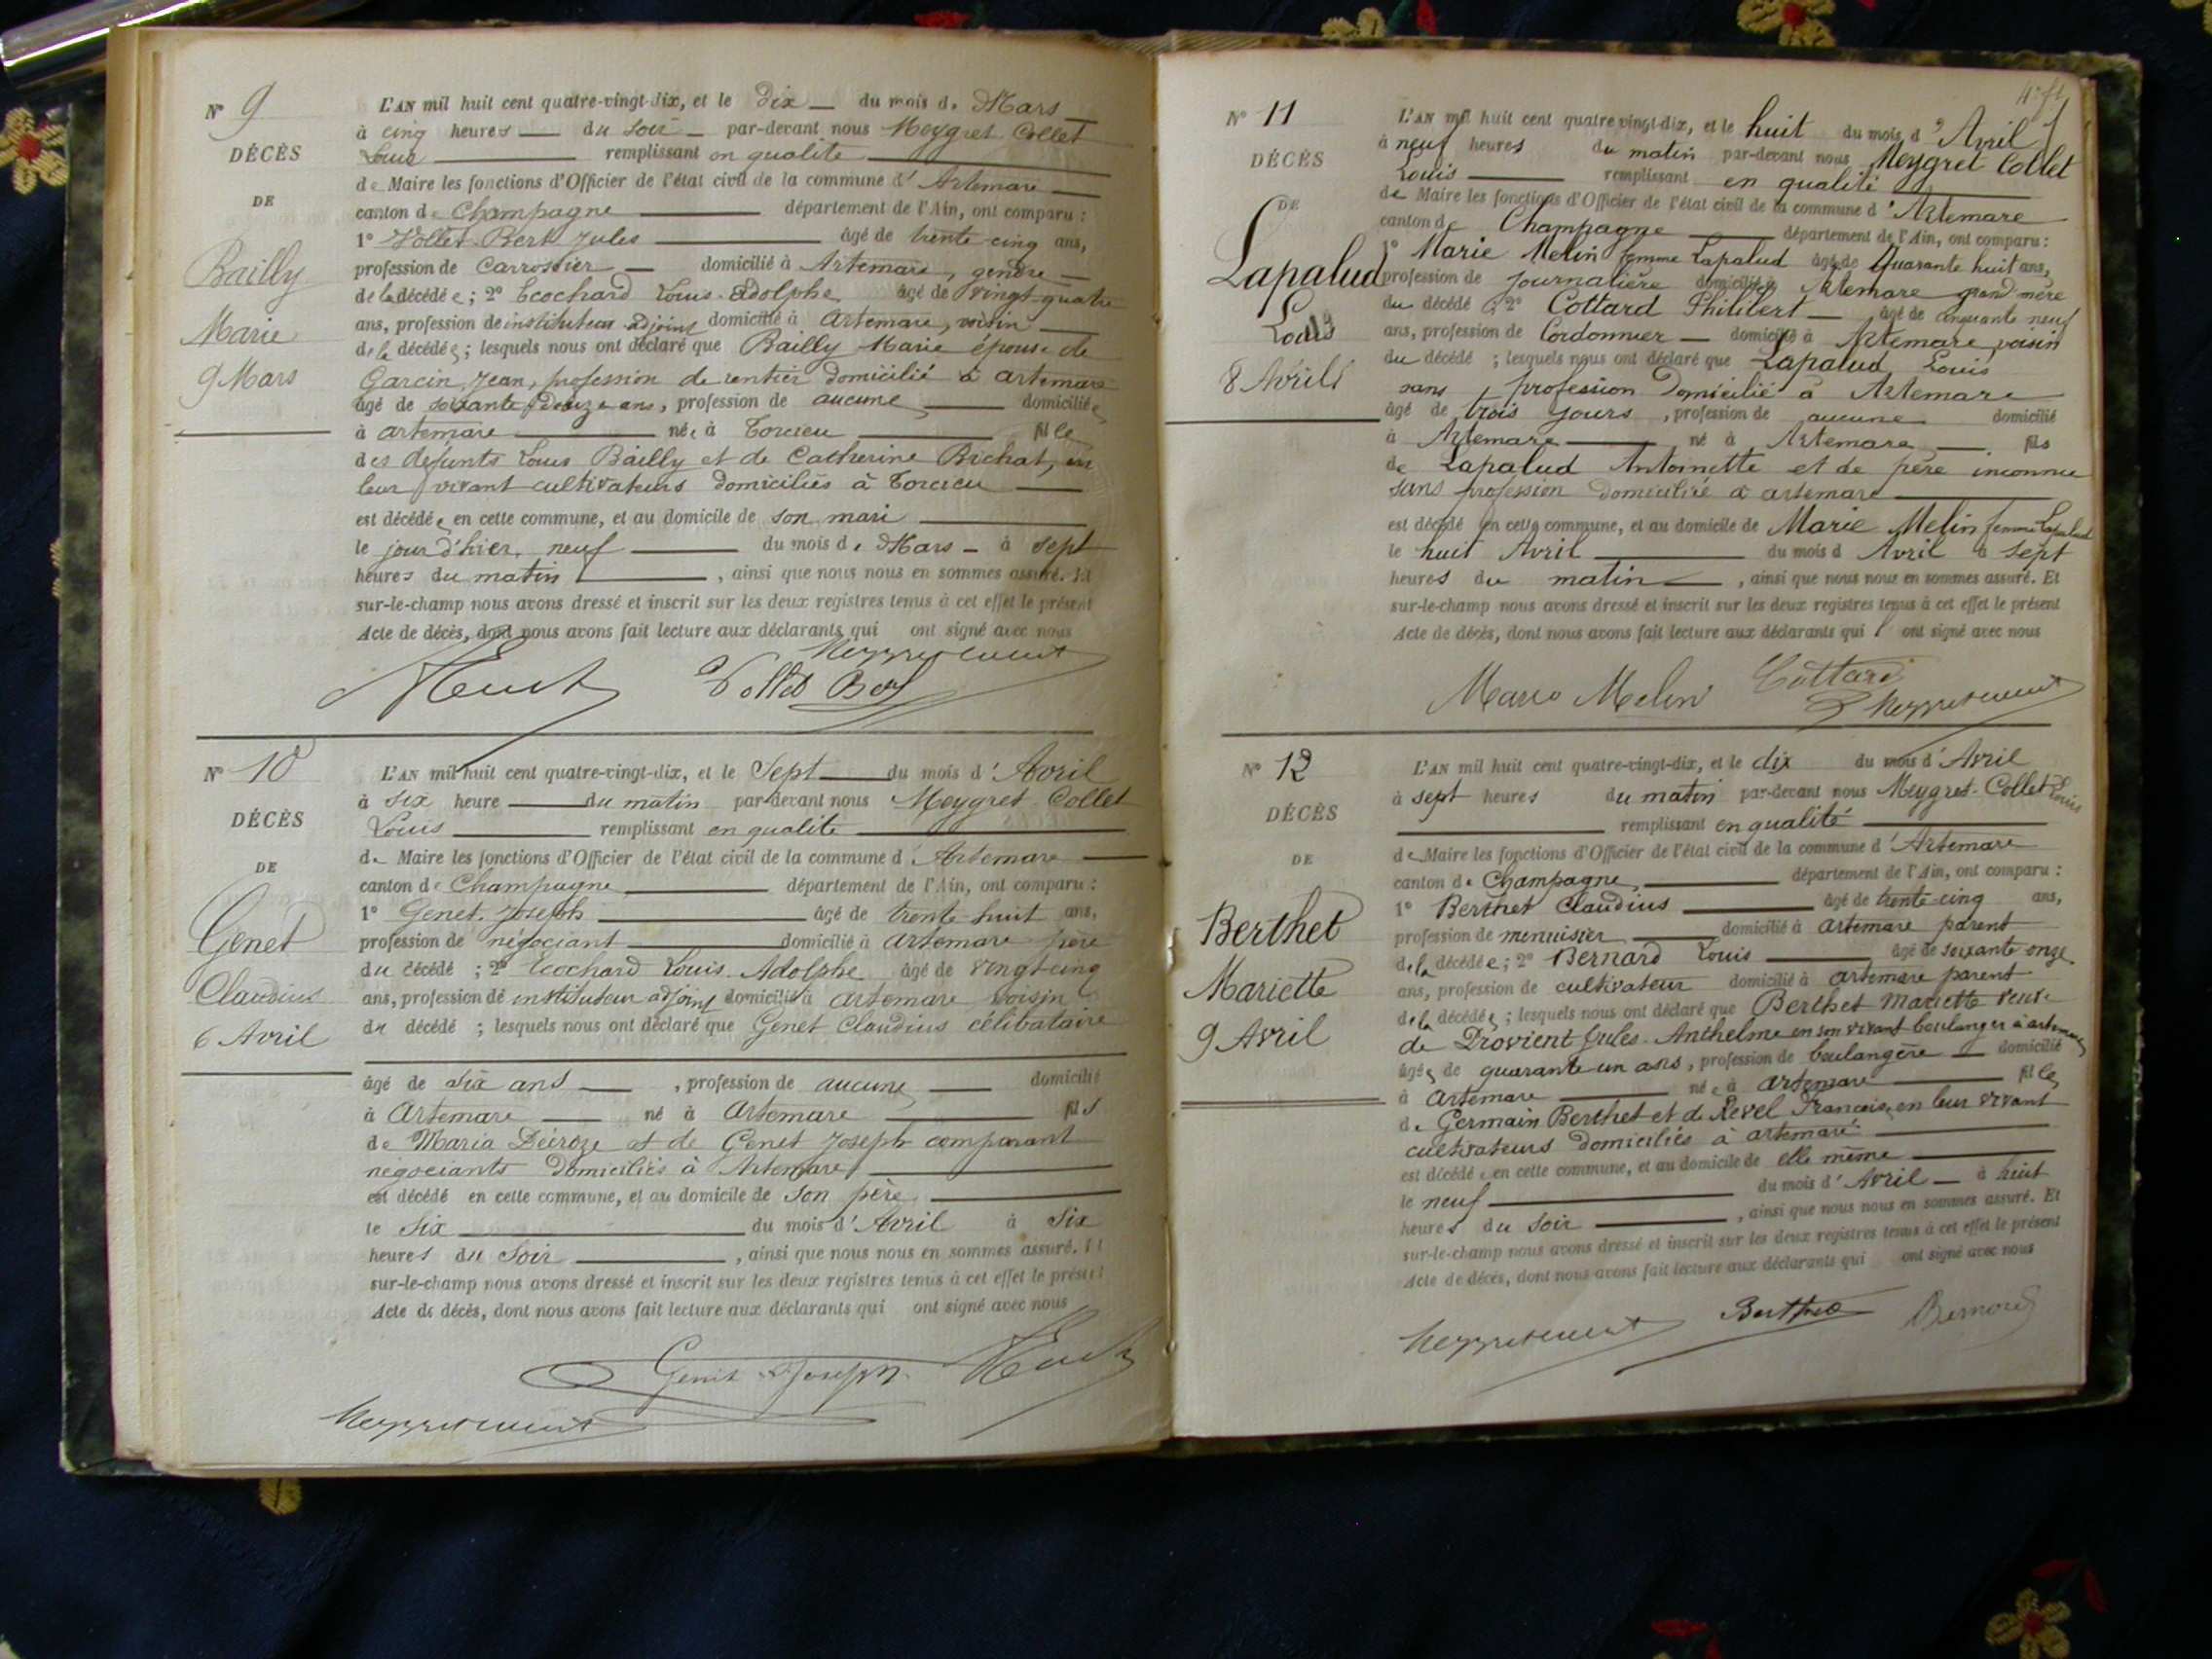 N° 9
DÉCÈS
DE
Bailly
Marie
9 Mars
L'AN mil huit cent quatre-vingt-dix, et le dix du mois de Mars
à cinq heures du soir par-devant nous Meygret Collet
Louis remplissant en qualité
de Maire les fonctions d'Officier de l'état civil de la commune d'Artemare
canton de Champagne département de l'Ain, ont comparu :
1° Vollet-Bert Jules âgé de trente cinq ans,
profession de carrossier domicilié à Artemare, gendre
de la décédée ; 2° Ecochard Louis-Adolphe âgé de vingt-quatre
ans, profession de instituteur adjoint domicilié à Artemare, voisin
de la décédée ; lesquels nous ont déclaré que Bailly Marie épouse de
Garcin, Jean, profession de rentier domicilié à artemare
âgé de soixante douze ans, profession de aucune domiciliée
à artemare née à Torcieu fille
des défunts Louis Bailly et de Catherine Bichat, en
leur vivant cultivateurs domiciliés à Torcieu
est décédée en cette commune, et au domicile de son mari
le jour d'hier, neuf du mois de Mars à sept
heures du matin , ainsi que nous nous en sommes assuré. Et
sur-le-champ nous avons dressé et inscrit sur les deux registres tenus à cet effet le présent
Acte de décès, dont nous avons fait lecture aux déclarants qui ont signé avec nous
Vollet Bert
N° 10
DÉCÈS
DE
Genet
Claudius
6 Avril
L'AN mil huit cent quatre-vingt-dix, et le Sept du mois d'Avril
à six heure du matin par-devant nous Meygret-Collet
Louis remplissant en qualité
de Maire les fonctions d'Officier de l'état civil de la commune d'Artemare
canton de Champagne département de l'Ain, ont comparu :
1° Genet Joseph âgé de trente-huit ans,
profession de négociant domicilié à artemare père
du décédé ; 2° Ecochard Louis-Adolphe âgé de vingt-cinq
ans, profession de instituteur adjoint domicilié à artemare voisin
du décédé ; lesquels nous ont déclaré que Genet Claudius célibataire
âgé de six ans , profession de aucune domicilié
à Artemare né à Artemare fils
de Maria Déiroze et de Genet Joseph comparant
négociants domiciliés à Artemare
est décédé en cette commune, et au domicile de son père
le six du mois d'Avril à six
heures du soir , ainsi que nous nous en sommes assuré. Et
sur-le-champ nous avons dressé et inscrit sur les deux registres tenus à cet effet le présent
Acte de décès, dont nous avons fait lecture aux déclarants qui ont signé avec nous
Genet Joseph
N° 11
DÉCÈS
DE
Lapalud
Louis
8 Avril
L'AN mil huit cent quatre-vingt-dix, et le huit du mois d'Avril
à neuf heures du matin par-devant nous Meygret Collet
Louis remplissant en qualité
de Maire les fonctions d'Officier de l'état civil de la commune d'Artemare
canton de Champagne département de l'Ain, ont comparu :
1° Marie Melin femme Lapalud âgé de Quarante huit ans,
profession de journalière domicilié à Artemare grand mère
du décédé ; 2° Cottard Philibert âgé de cinquante neuf
ans, profession de Cordonnier domicilié à Artemare voisin
du décédé ; lesquels nous ont déclaré que Lapalud Louis
sans profession domicilié à Artemare
âgé de trois jours , profession de aucune domicilié
à Artemare né à Artemare fils
de Lapalud Antoinette et de père inconnu
sans profession domiciliée à artemare
est décédé en cette commune, et au domicile de Marie Melin femme Lapalud
le huit Avril du mois d Avril à sept
heures du matin , ainsi que nous nous en sommes assuré. Et
sur-le-champ nous avons dressé et inscrit sur les deux registres tenus à cet effet le présent
Acte de décès, dont nous avons fait lecture aux déclarants qui ont signé avec nous
Marie Melin Cottard
N° 12
DÉCÈS
DE
Berthet
Mariette
9 Avril
L'AN mil huit cent quatre-vingt-dix, et le dix du mois d'Avril
à sept heures du matin par-devant nous Meygret-Collet Louis
remplissant en qualité
de Maire les fonctions d'Officier de l'état civil de la commune d'Artemare
canton de Champagne département de l'Ain, ont comparu :
1° Berthet Claudius âgé de trente-cinq ans,
profession de menuisier domicilié à artemare parent
de la décédée ; 2° Bernard Louis âgé de soixante onze
ans, profession de cultivateur domicilié à artemare parent
de la décédée ; lesquels nous ont déclaré que Berthet Mariette veuve
de Drovient Jules-Anthelme en son vivant boulanger à artemare
âgée de quarante-un ans, profession de boulangère domicilié
à Artemare née à artemare fille
de Germain Berthet et de Revel Françoise, en leur vivant
cultivateurs domiciliés à artemare
est décédée en cette commune, et au domicile de elle même
le neuf du mois d'Avril à huit
heures du soir , ainsi que nous nous en sommes assuré. Et
sur-le-champ nous avons dressé et inscrit sur les deux registres tenus à cet effet le présent
Acte de décès, dont nous avons fait lecture aux déclarants qui ont signé avec nous
Berthet Bernard